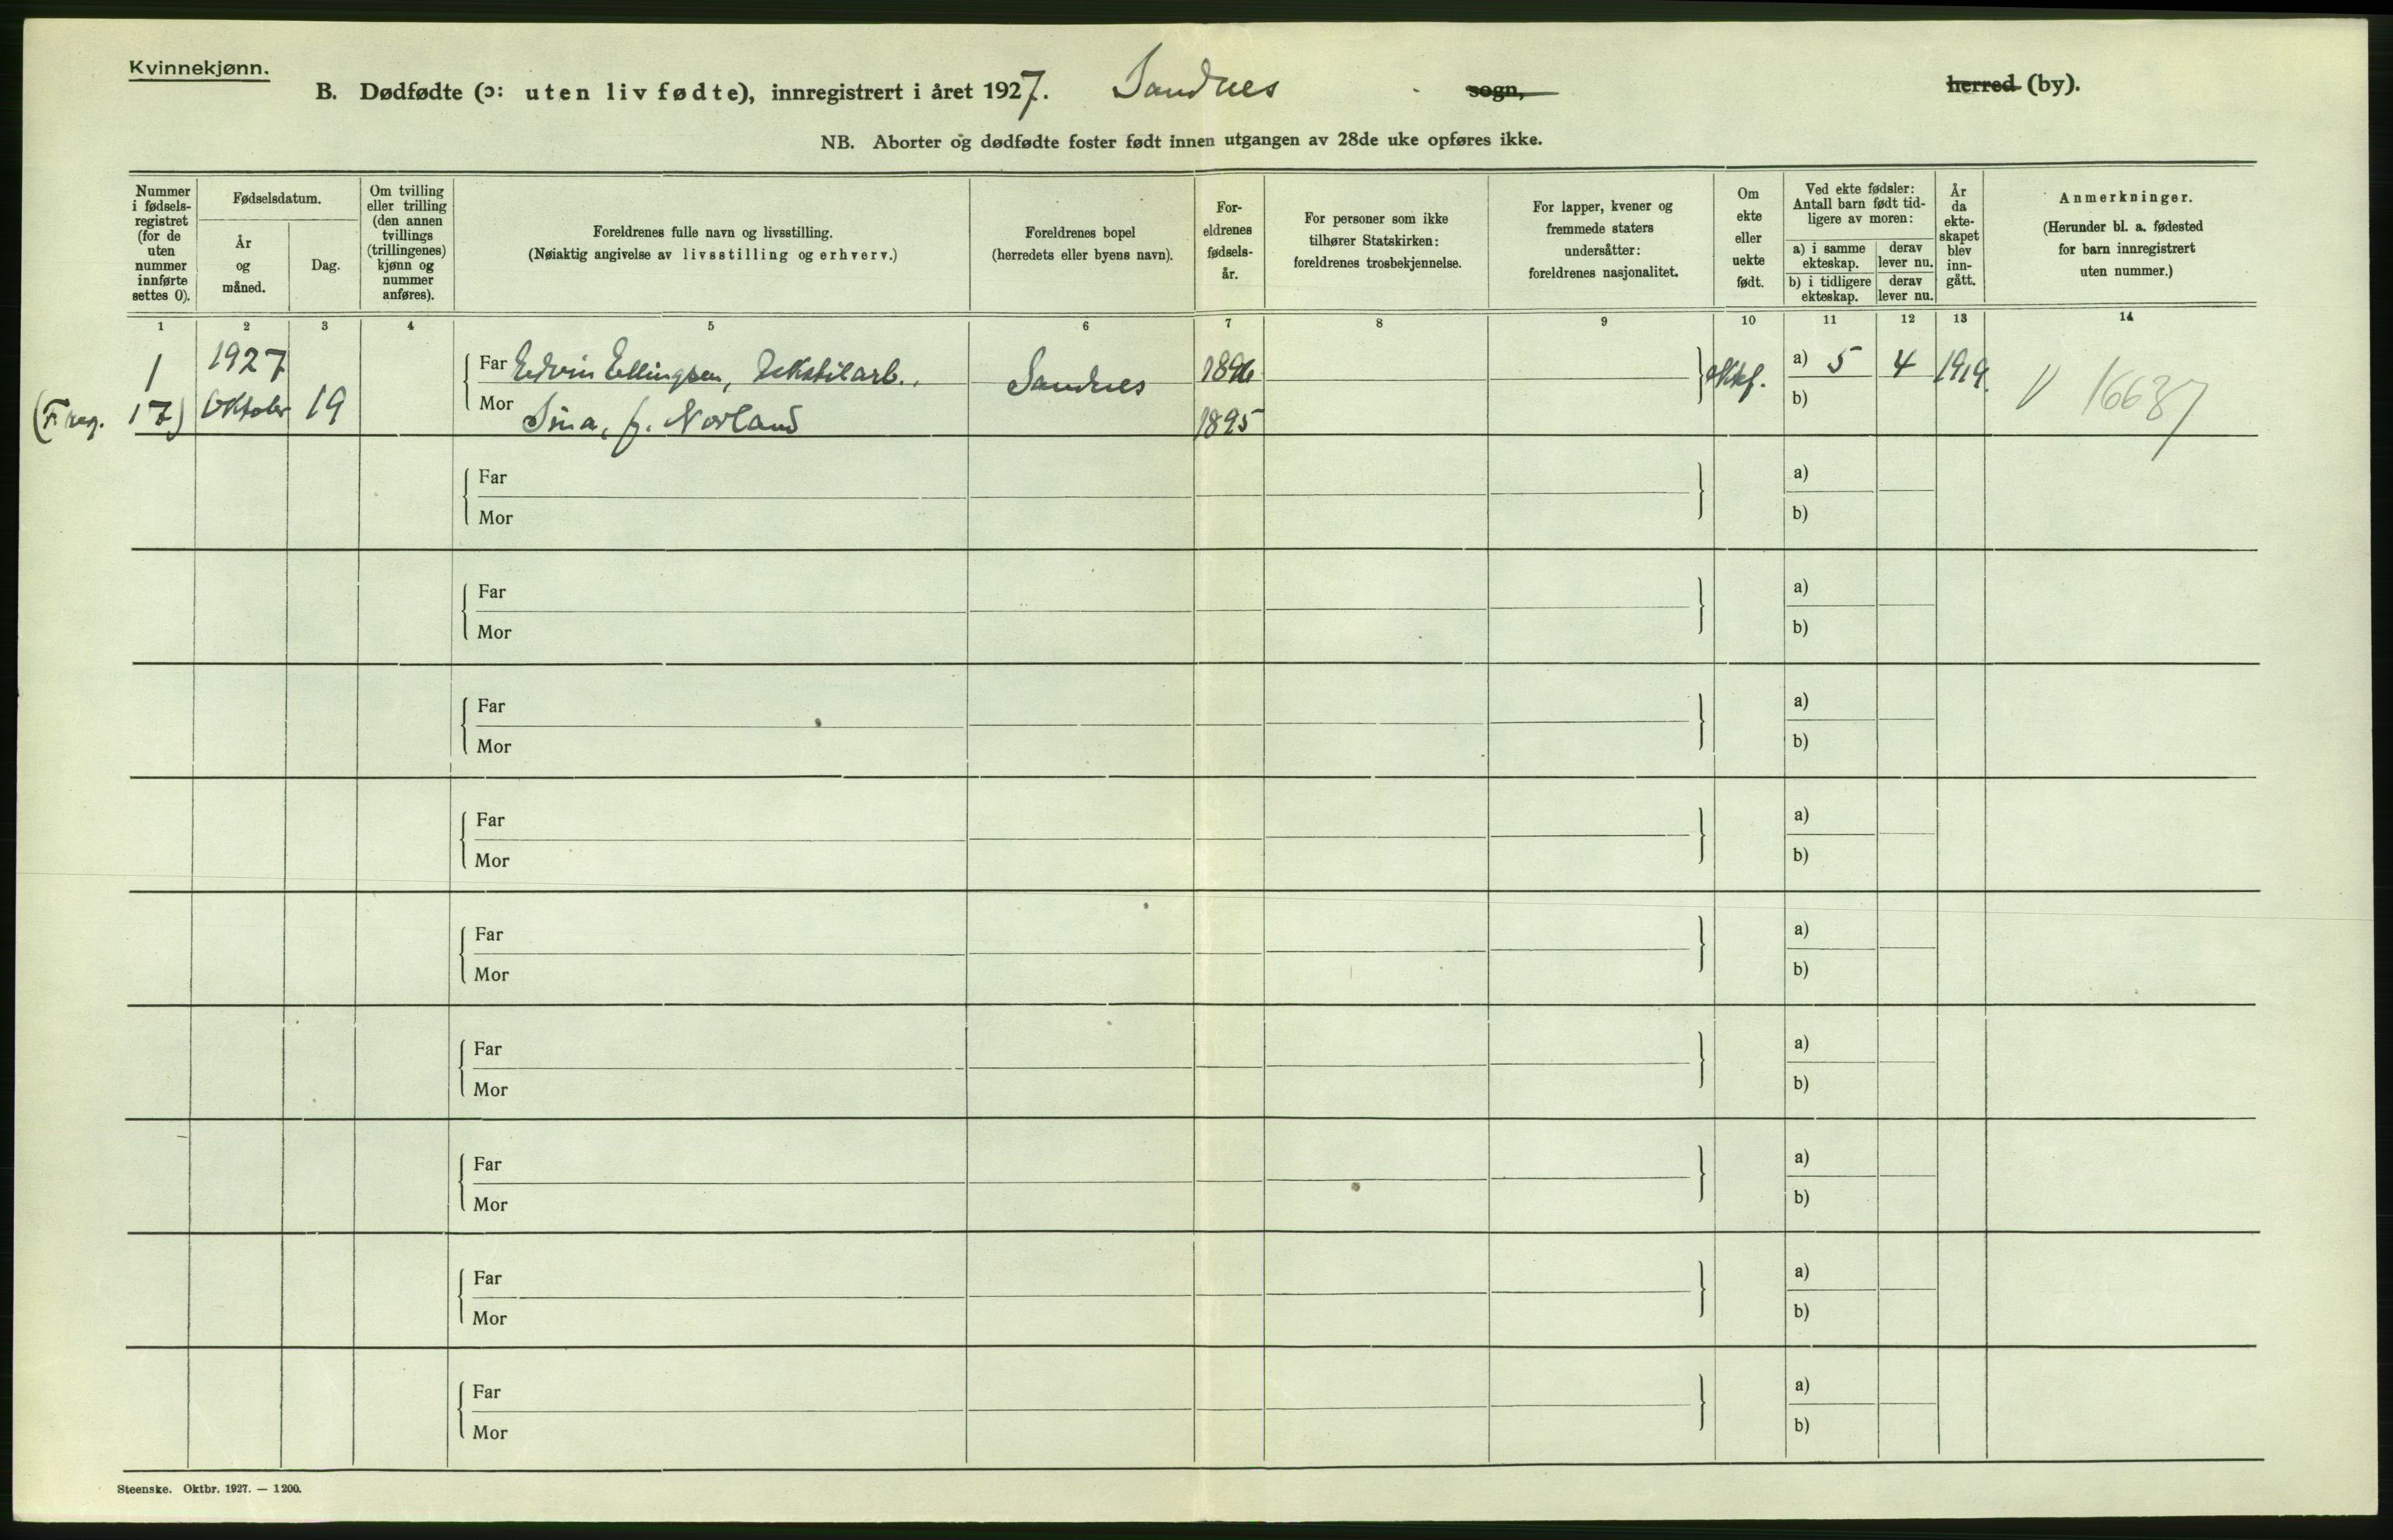 Kvinnekjønn.
B. Dødfødte (ɔ: uten liv fødte), innregistrert i året 1927. Sandnes sogn, herred (by).
NB. Aborter og dødfødte foster født innen utgangen av 28de uke opføres ikke.
Nummer i fødsels-registret (for de uten nummer innførte settes 0).
Fødselsdatum.
År og måned.
Dag.
Om tvilling eller trilling (den annen tvillings (trillingenes) kjønn og nummer anføres).
Foreldrenes fulle navn og livsstilling.
(Nøiaktig angivelse av livsstilling og erhverv.)
Foreldrenes bopel
(herredets eller byens navn).
For-eldrenes fødsels-år.
For personer som ikke tilhører Statskirken: foreldrenes trosbekjennelse.
For lapper, kvener og fremmede staters undersåtter: foreldrenes nasjonalitet.
Om ekte eller uekte født.
Ved ekte fødsler: Antall barn født tid-ligere av moren:
a) i samme ekteskap.
derav lever nu.
b) i tidligere ekteskap.
derav lever nu.
År da ekte-skapet blev inn-gått.
Anmerkninger.
(Herunder bl. a. fødested for barn innregistrert uten nummer.)
1 2 3 4 5 6 7 8 9 10 11 12 13 14
1 1927 Far Edvin Ellingsen, Tekstilarb. Sandnes 1896 a) 5 4 1919. V 16637
(F reg. 17) Oktober 19 Mor Sina, f. Norland 1895 b)
Far a)
Mor b)
Far a)
Mor b)
Far a)
Mor b)
Far a)
Mor b)
Far a)
Mor b)
Far a)
Mor b)
Far a)
Mor b)
Far a)
Mor b)
Far a)
Mor b)
Steenske. Oktbr. 1927. — 1200.